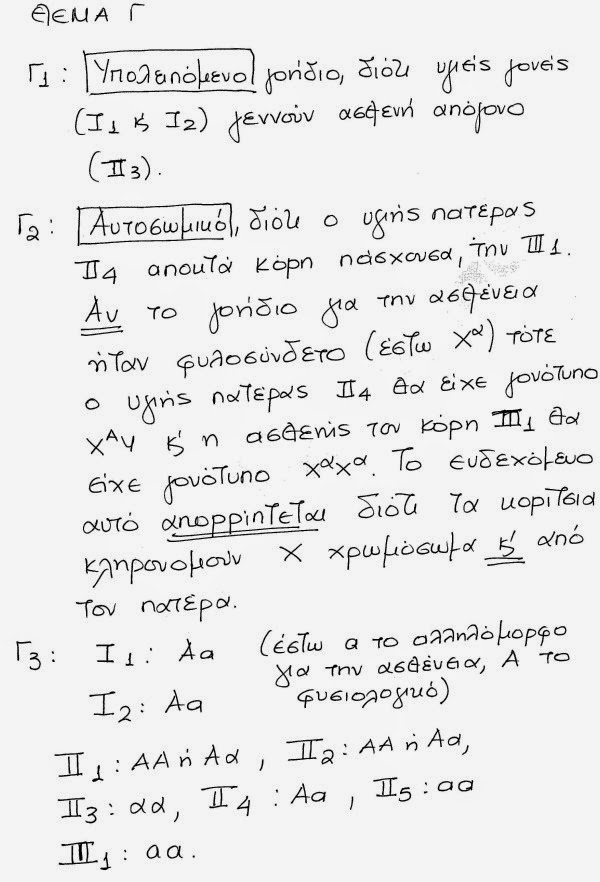 ΘΕΜΑ Γ
Γ1: Υπολειπόμενο γονίδιο, διότι υγιείς γονείς
(Ι1 κ Ι2) γεννούν ασθενή απόγονο
(ΙΙ3).
Γ2: Αυτοσωμικό, διότι ο υγιής πατέρας
ΙΙ4 αποκτά κόρη πάσχουσα, την ΙΙΙ1.
Αν το γονίδιο για την ασθένεια
ήταν φυλοσύνδετο (έστω Χᵅ) τότε
ο υγιής πατέρας ΙΙ4 θα είχε γονότυπο
ΧᴬΥ κ' η ασθενής του κόρη ΙΙΙ1 θα
είχε γονότυπο ΧᵅΧᵅ. Το ενδεχόμενο
αυτό απορρίπτεται διότι τα κορίτσια
κληρονομούν Χ χρωμόσωμα κ' από
τον πατέρα.
Γ3: Ι1: Αα (έστω α το αλληλόμορφο
για την ασθένεια, Α το
Ι2: Αα φυσιολογικό)
ΙΙ1: ΑΑ ή Αα, ΙΙ2: ΑΑ ή Αα,
ΙΙ3: αα, ΙΙ4: Αα, ΙΙ5: αα
ΙΙΙ1: αα.